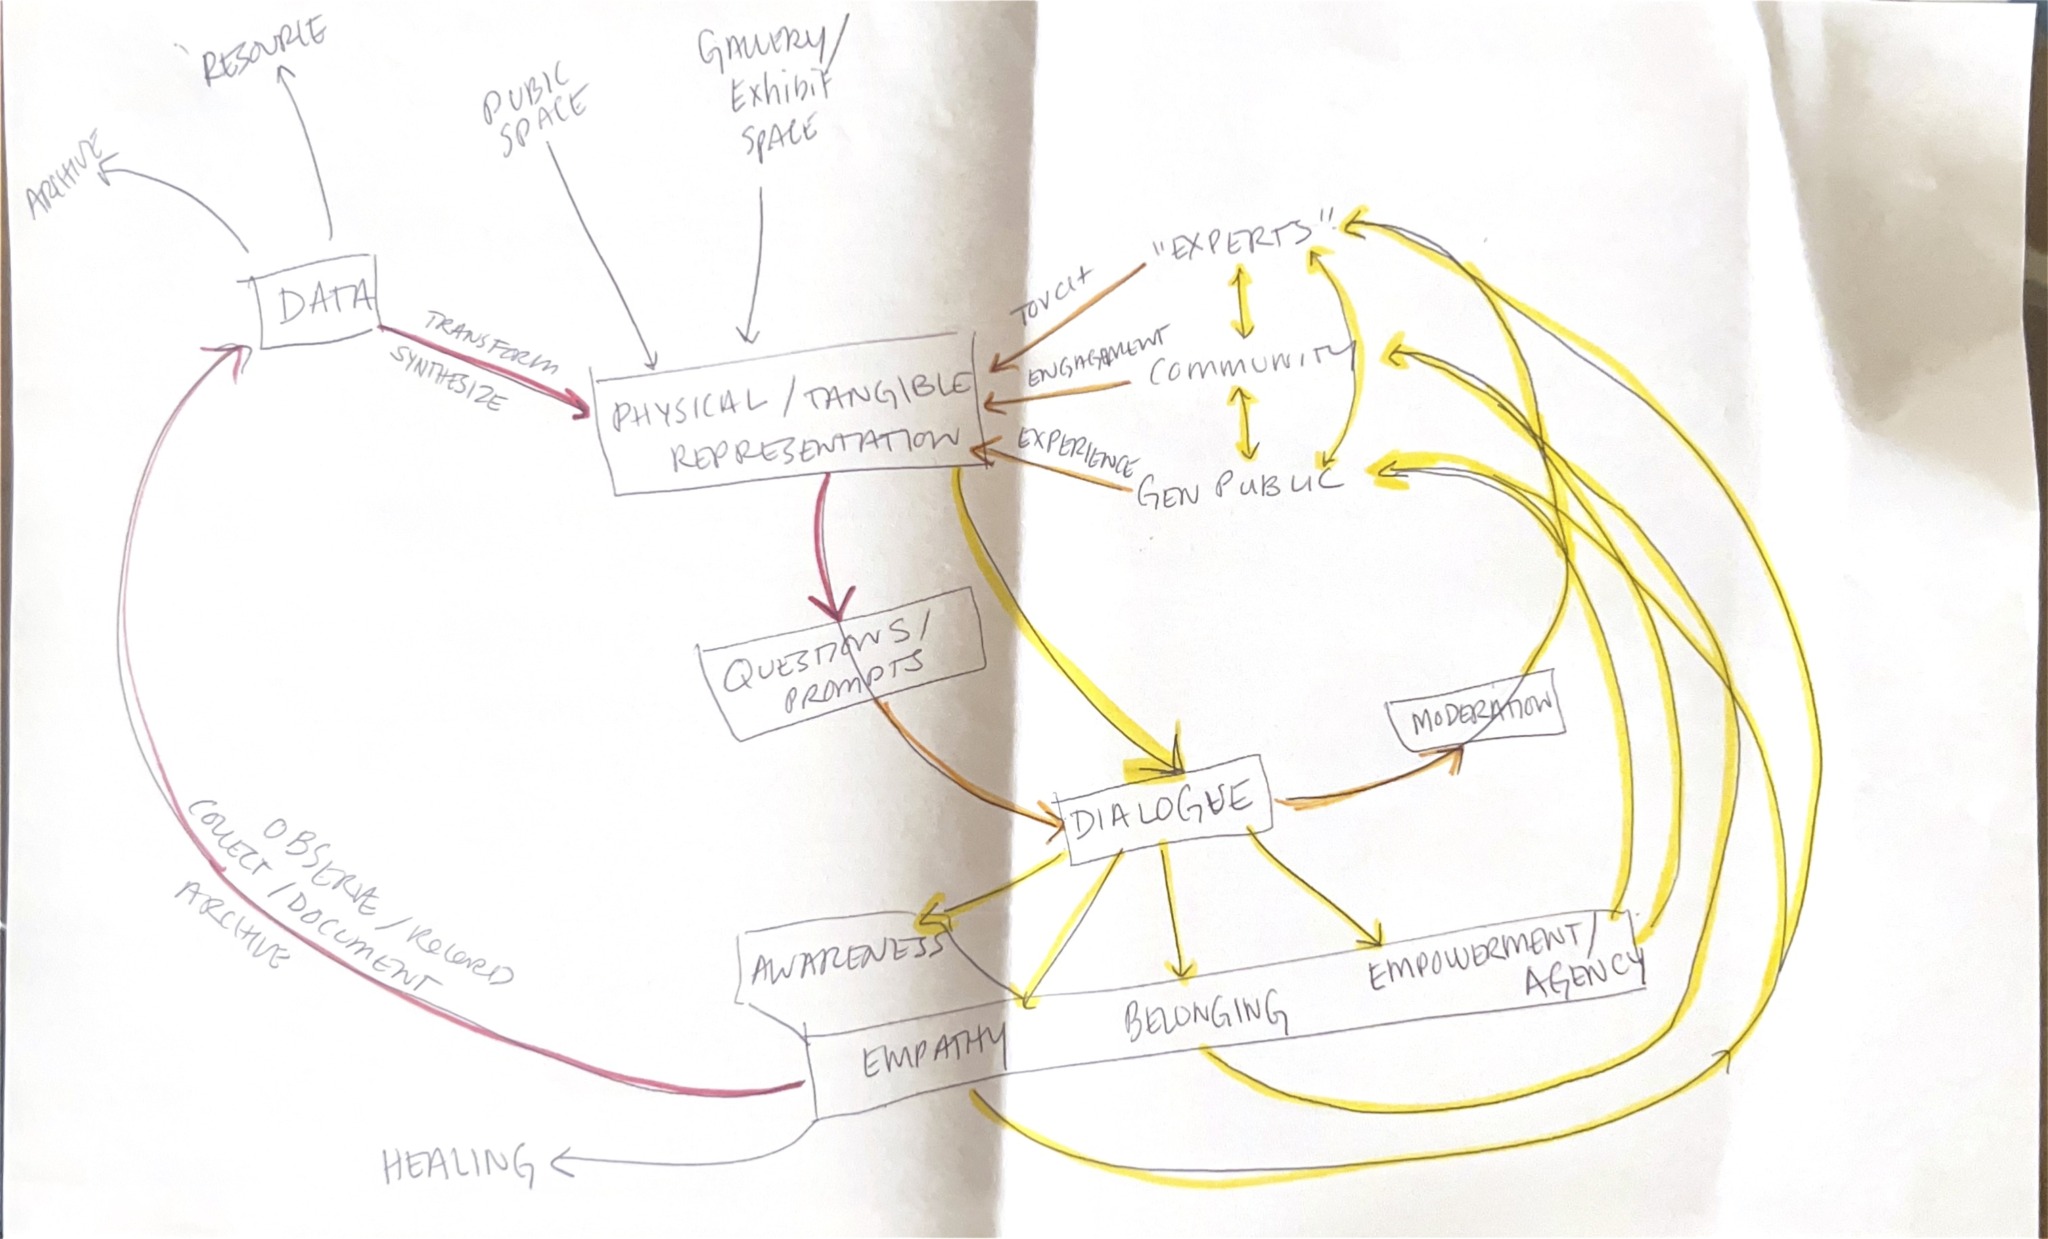 RESOURCE
ARCHIVE
PUBIC
SPACE
GALLERY/
Exhibit
SPACE
DATA
TRANSFORM
SYNTHESIZE
PHYSICAL / TANGIBLE
REPRESENTATION
"EXPERTS"
TOUCH
ENGAGEMENT
COMMUNITY
EXPERIENCE
GEN PUBLIC
QUESTIONS/
PROMPTS
MODERATION
DIALOGUE
OBSERVE / RECORD
COLLECT / DOCUMENT
ARCHIVE
AWARENESS
EMPATHY
BELONGING
EMPOWERMENT/
AGENCY
HEALING